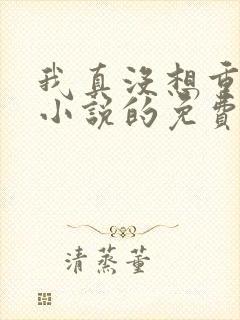 我真沒想重
小說的免費
清蒸董